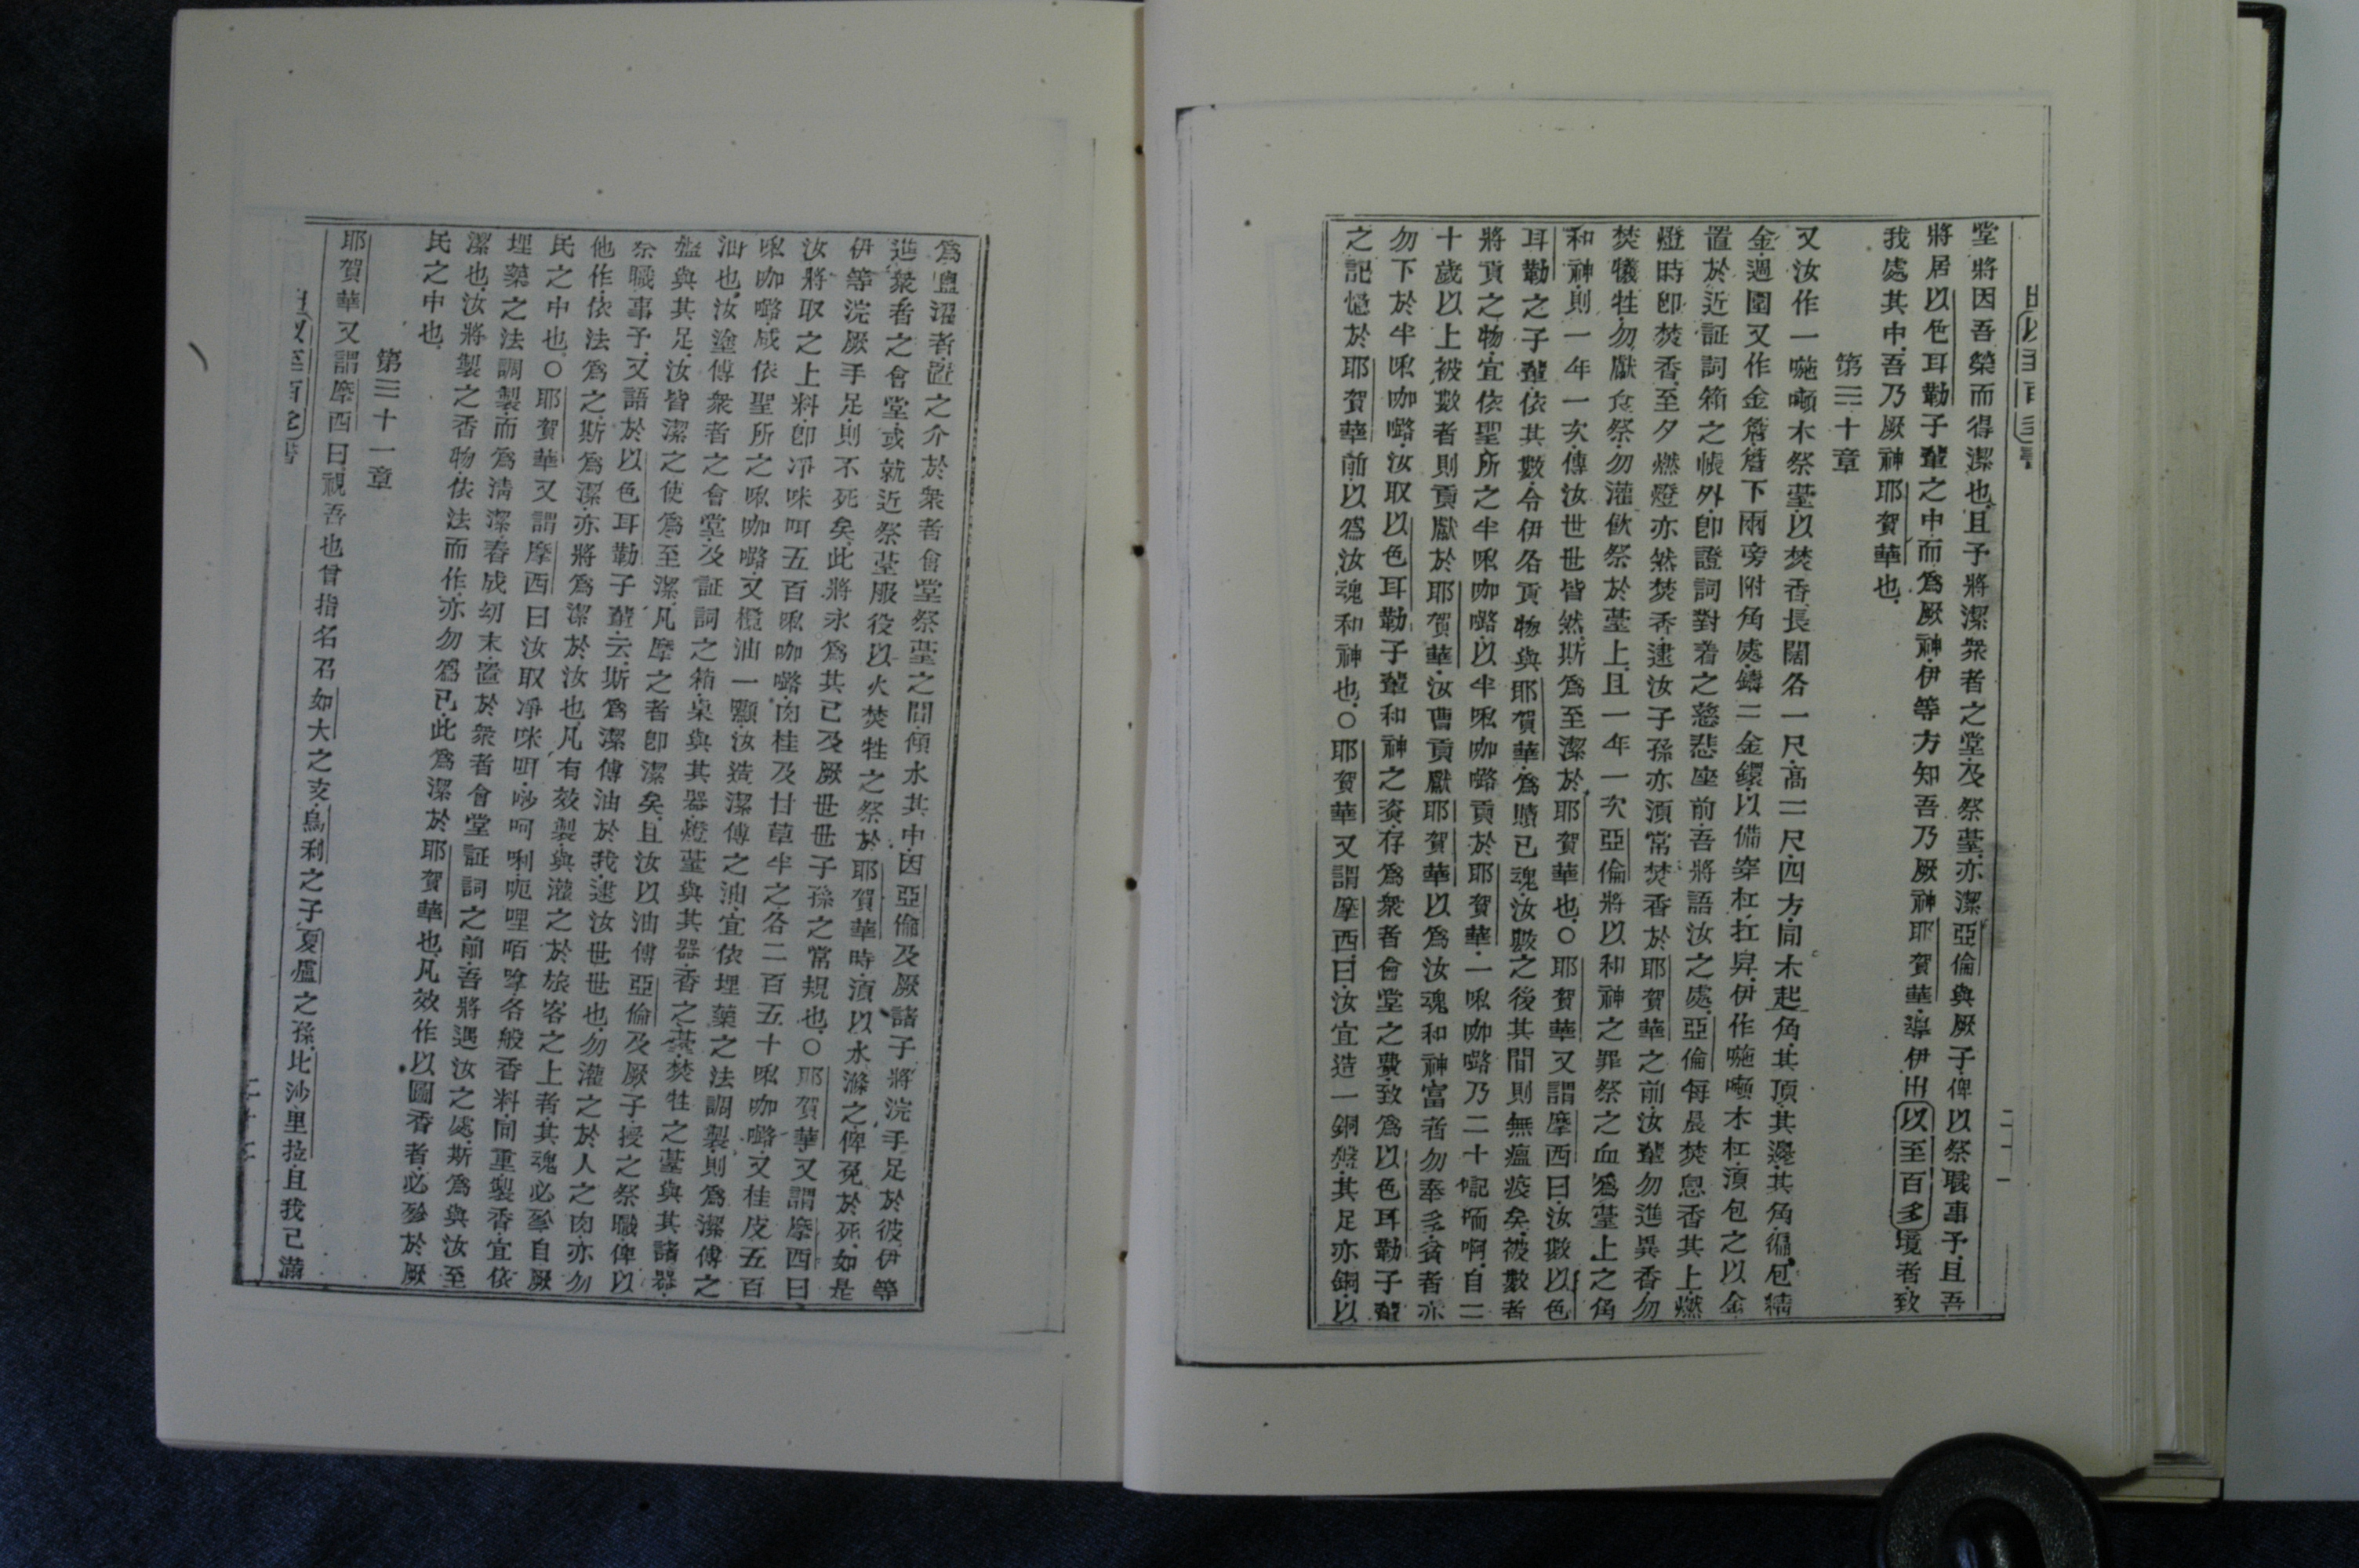 堂將因吾榮而得潔也且予將潔衆者之堂及祭䑓亦潔亞倫與厥子俾以祭職事予且吾
將居以色耳勒子輩之中而爲厥神伊等方知吾乃厥神耶賀華導伊出以至百多境者致
我處其中吾乃厥神耶賀華也
第三十章
又汝作一㗔㘔木祭䑓以焚香長闊各一尺高二尺四方同木起角其頂其邊其角徧包精
金週圍又作金簷簷下兩旁附角處鑄二金鐶以備穿杠扛舁伊作㗔㘔木杠須包之以金
置於近証詞箱之帳外卽證詞對着之慈悲座前吾將語汝之處亞倫每晨焚息香其上燃
燈時卽焚香至夕燃燈亦然焚香逮汝子孫亦須常焚香於耶賀華之前汝輩勿進異香勿
焚犧牲勿獻食祭勿灌飲祭於䑓上且一年一次亞倫將以和神之罪祭之血爲䑓上之角
和神則一年一次傳汝世世皆然斯爲至潔於耶賀華也○耶賀華又謂摩西曰汝數以色
耳勒之子輩依其數令伊各貢物與耶賀華爲贖已魂汝數之後其間則無瘟疫矣被數者
將貢之物宜依聖所之半𠵽咖𡀔以半𠵽咖𡀔貢於耶賀華一𠵽咖𡀔乃二十啊自二
十歲以上被數者則貢獻於耶賀華汝曹貢獻耶賀華以爲汝魂和神富者勿奉多貧者亦
勿下於半𠵽咖𡀔汝取以色耳勒子輩和神之資存爲衆者會堂之費致爲以色耳勒子輩
之記憶於耶賀華前以爲汝魂和神也○耶賀華又謂摩西曰汝宜造一銅盤其足亦銅以
爲盥濯者置之介於衆者會堂祭䑓之間傾水其中因亞倫及厥諸子將浣手足於彼伊等
進衆者之會堂或就近祭䑓服役以火焚牲之祭於耶賀華時須以水滌之俾免於死如是
伊等浣厥手足則不死矣此將永爲其已及厥世世子孫之常規也○耶賀華又謂摩西曰
汝將取之上料卽凈咪𠵽五百𠵽咖𡀔肉桂及甘草半之各二百五十𠵽咖𡀔又桂皮五百
𠵽咖𡀔咸依聖所之𠵽咖𡀔又橙油一顯汝造潔傅之油宜依埋藥之法調製則爲潔傅之
油也汝塗傅衆者之會堂及証詞之箱桌與其器燈䑓與其器香之䑓焚牲之䑓與其諸器
盤與其足汝皆潔之使爲至潔凡摩之者卽潔矣且汝以油傅亞倫及厥子授之祭職俾以
祭職事予又語於以色耳勒子輩云斯爲潔傅油於我逮汝世世也勿灌之於人之肉亦勿
他作依法爲之斯爲潔亦將爲潔於汝也凡有效製與灌之於旅客之上者其魂必殄自厥
民之中也○耶賀華又謂摩西曰汝取凈咪呵唎呃哩咟嗱各般香料同重製香宜依
埋藥之法調製而爲淸潔舂成幼末置於衆者會堂証詞之前吾將遇汝之處斯爲與汝至
潔也汝將製之香物依法而作亦勿爲已此爲潔於耶賀華也凡效作以圖香者必殄於厥
民之中也
第三十一章
耶賀華又謂摩西曰視吾也曾指名召如大之支烏利之子夏盧之孫比沙里拉且我已滿